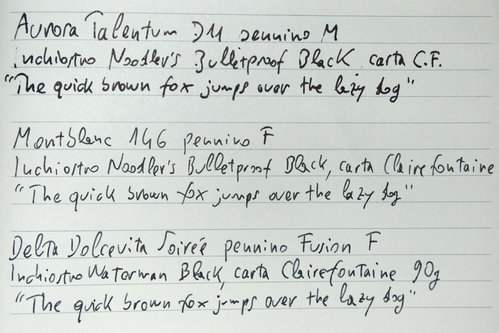 Aurora Talentum DM pennino M
Inchiostro Noodler's Bulletproof Black carta C.F.
"The quick brown fox jumps over the lazy dog"
Montblanc 146 pennino F
Inchiostro Noodler's Bulletproof Black, carta Clairefontaine
"The quick brown fox jumps over the lazy dog"
Delta Dolcevita Soirée pennino Fusion F
Inchiostro Waterman Black, carta Clairefontaine 90g
"The quick brown fox jumps over the lazy dog"